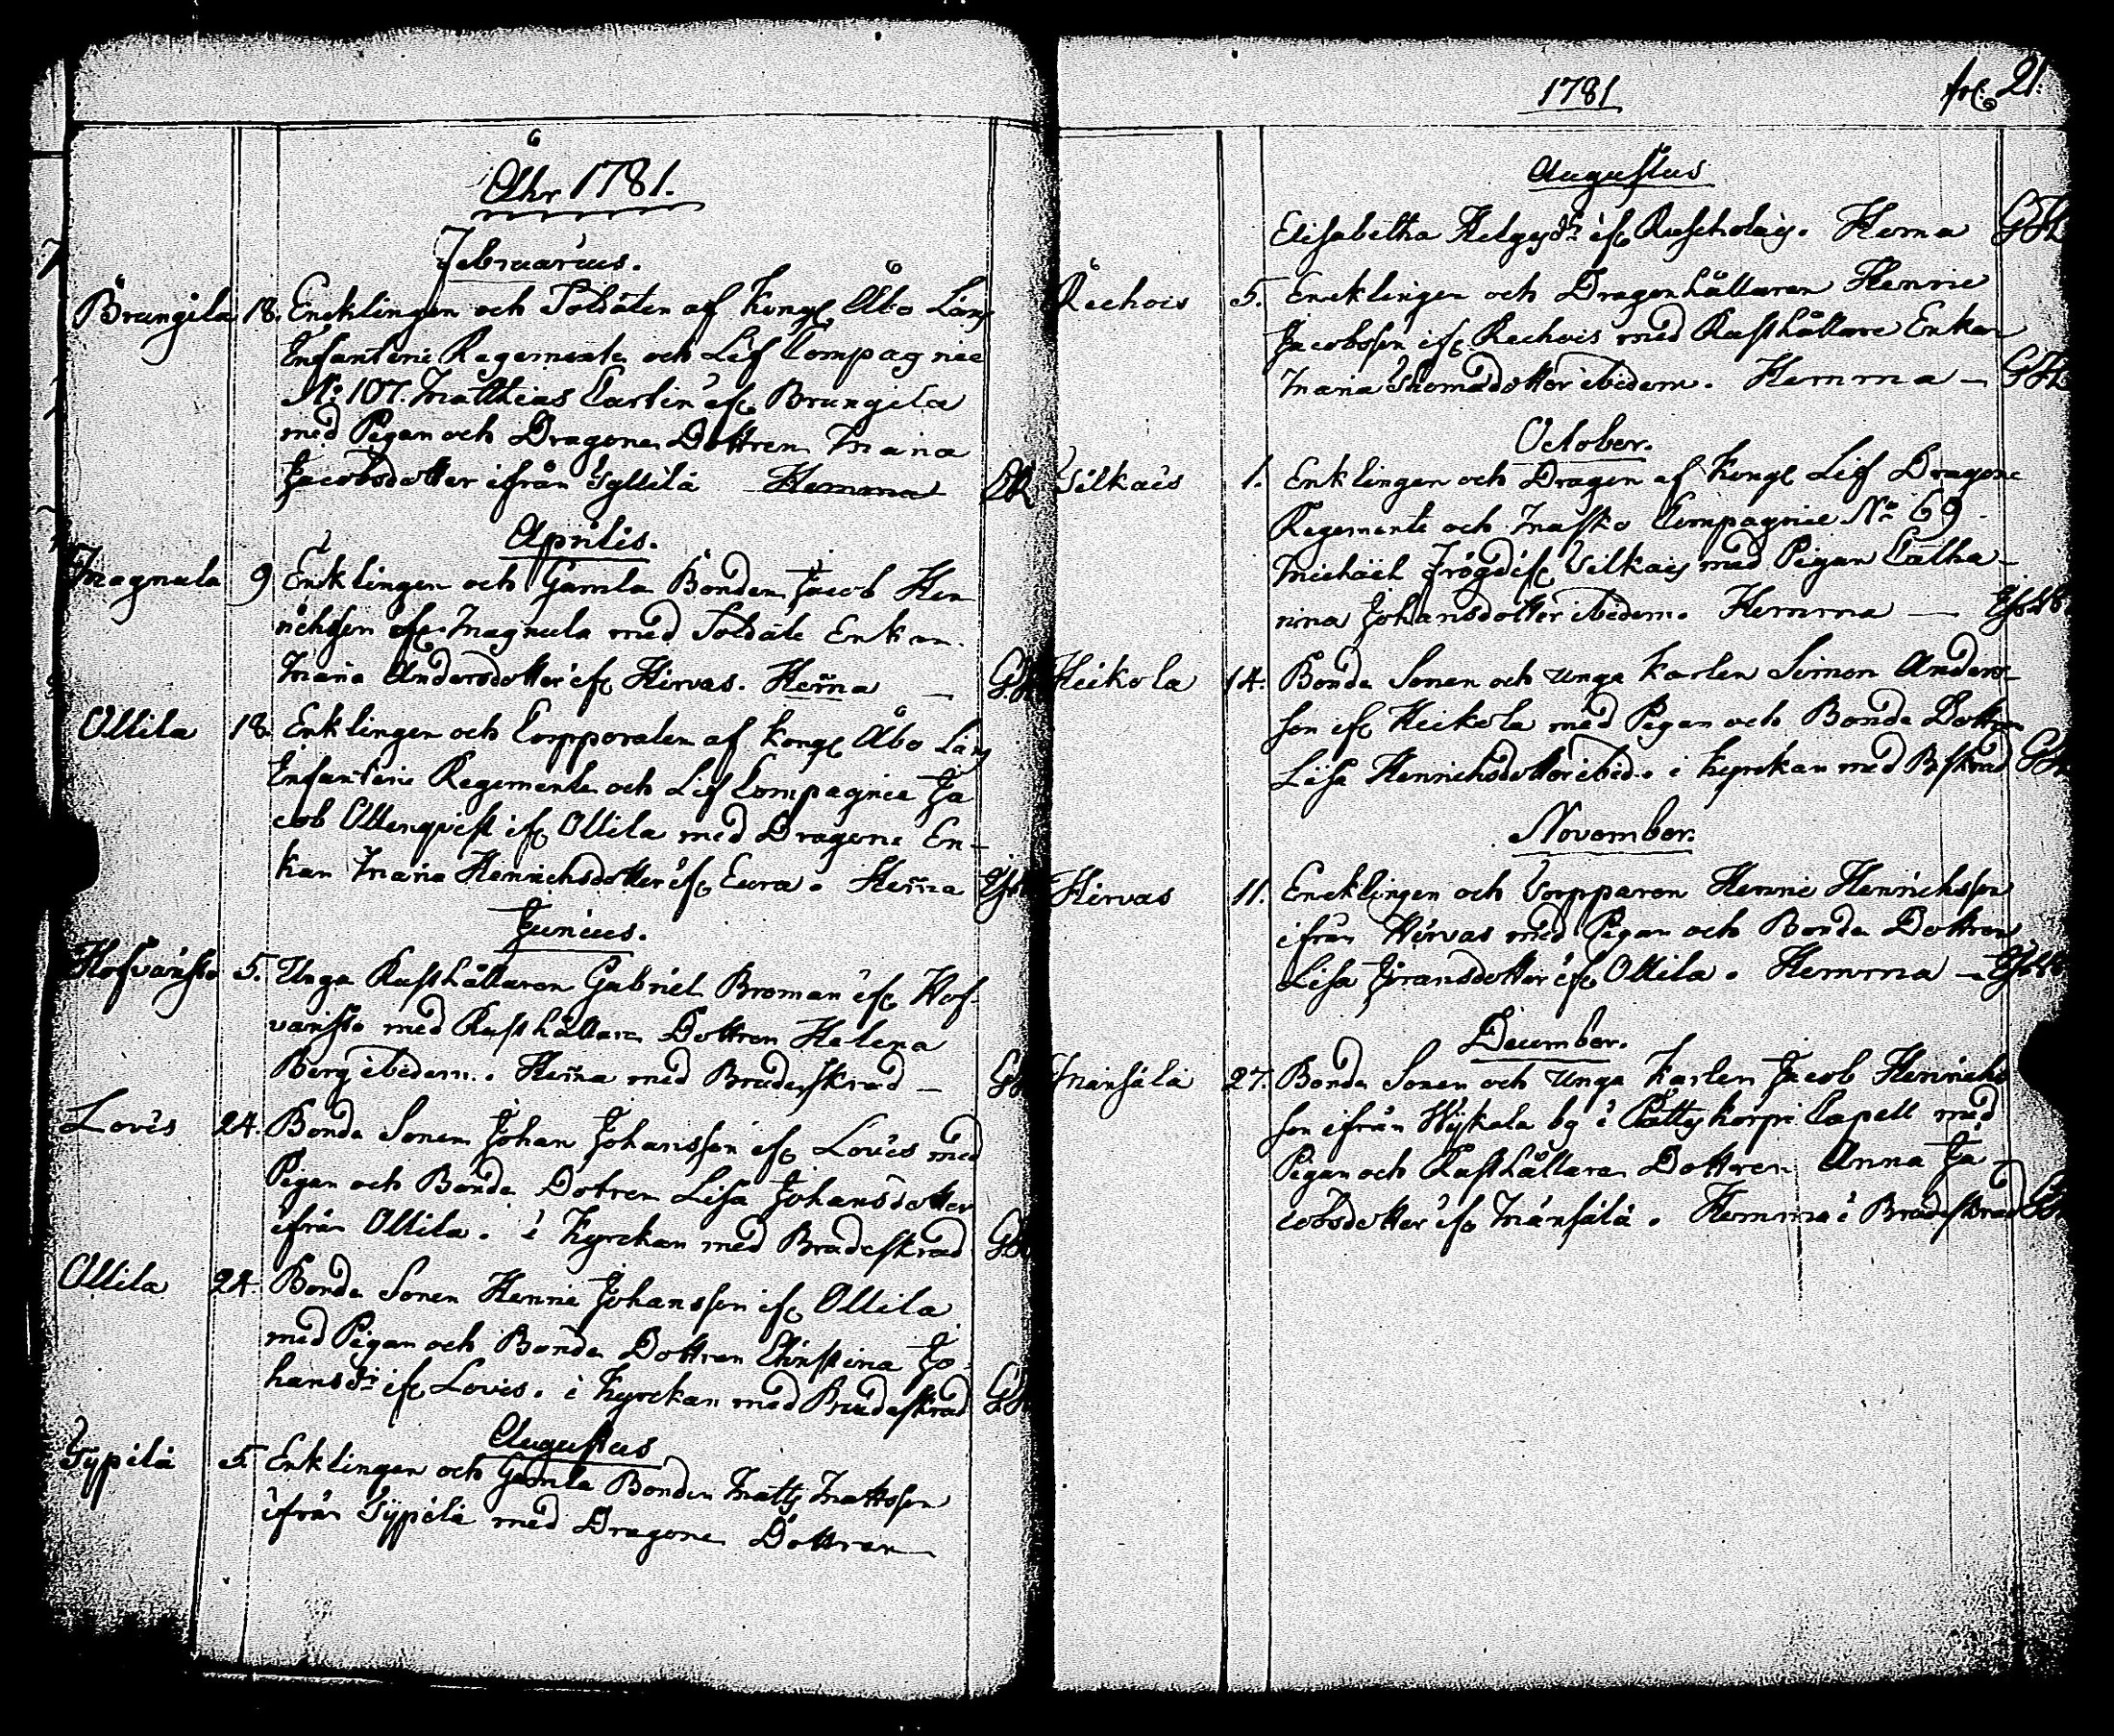 Åhr 1781.
Februarius.
Brungila 18. Encklingen och Soldaten af Kongl Åbo Läns
Infanterie Regemente och Lif Compagnie
No: 107. Matthias Carlin if. Brungila
med Pigan och Dragone Dottren Maria
Jacobsdotter ifrån Gyllilä Hemma
Aprilis.
Magnula 9 Encklingen och Gamla Bonden Jacob Hen
richsson if. Magnula med Soldate Enkan
Maria Andersdotter if. Hirvas. Hem̄a
Ollila 18. Enklingen och Corpporalen af Kongl Åbo Läns
Infanterie Regemente och Lif Compagnie Ja
cob Ollenqvist if. Ollila med Dragone En-
kan Maria Henrichsdotter if. Eura. Hem̄a
Junius.
Hofvaristo 5. Unga Rusthållaren Gabriel Broman if. Hof-
varisto med Rusthållare Dottren Helena
Berg ibidem. Hem̄a med Brudeskrud
Lovis 24. Bonde Sonen Johan Johansson if. Lovis med
Pigan och Bonde Dotren Lisa Johansdotter
ifrån Ollila. i Kyrckan med Brudeskrud G.H.
Ollila 24. Bonde Sonen Henric Johansson if. Ollila
med Pigan och Bonde Dottren Christina Jo-
hansdr if. Lovis. i Kyrckan med Brudeskrud G.H.
Augustus
Sypilä 5. Enklingen och Gamla Bonden Matts Mattsson
ifrån Sypilä med Dragone Dottren
1781 fol. 21.
Augustus
Elisabetha Helgesdr if. Hema GH
Rechois 5. Encklingen och Dragonhållaren Henric
Jacobsson if. Rechois med Rusthållare Enkan
Maria Thomasdotter ibidem. Hemma — GH
October.
Vilkais 1. Enklingen och Dragon af Kongl Lif Dragone
Regemente och Masko Compagnie No 69
Michaël Frögd if. Vilkais med Pigan Catha-
rina Johansdotter ibidem. Hemma —
Heikola 14. Bonde Sonen och unga Karlen Simon Anders-
son if. Heikola med Pigan och Bonde Dottren
Lisa Henrichsdotter ibid. i Kyrckan med Bskrud GH
November.
Hirvas 11. Encklingen och Corpparon Henric Henrichsson
ifrån Hirvas med Pigan och Bonde Dottren
Lisa Jöransdotter if. Ollila. Hemma —
December.
Mansälä 27. Bonde Sonen och unga Karlen Jacob Henrichs
son ifrån Wykala by i Pattiskorpi Capell med
Pigan och Rusthållare Dottren Anna Ja-
cobsdotter if. Mansälä. Hemma i Brudeskrud